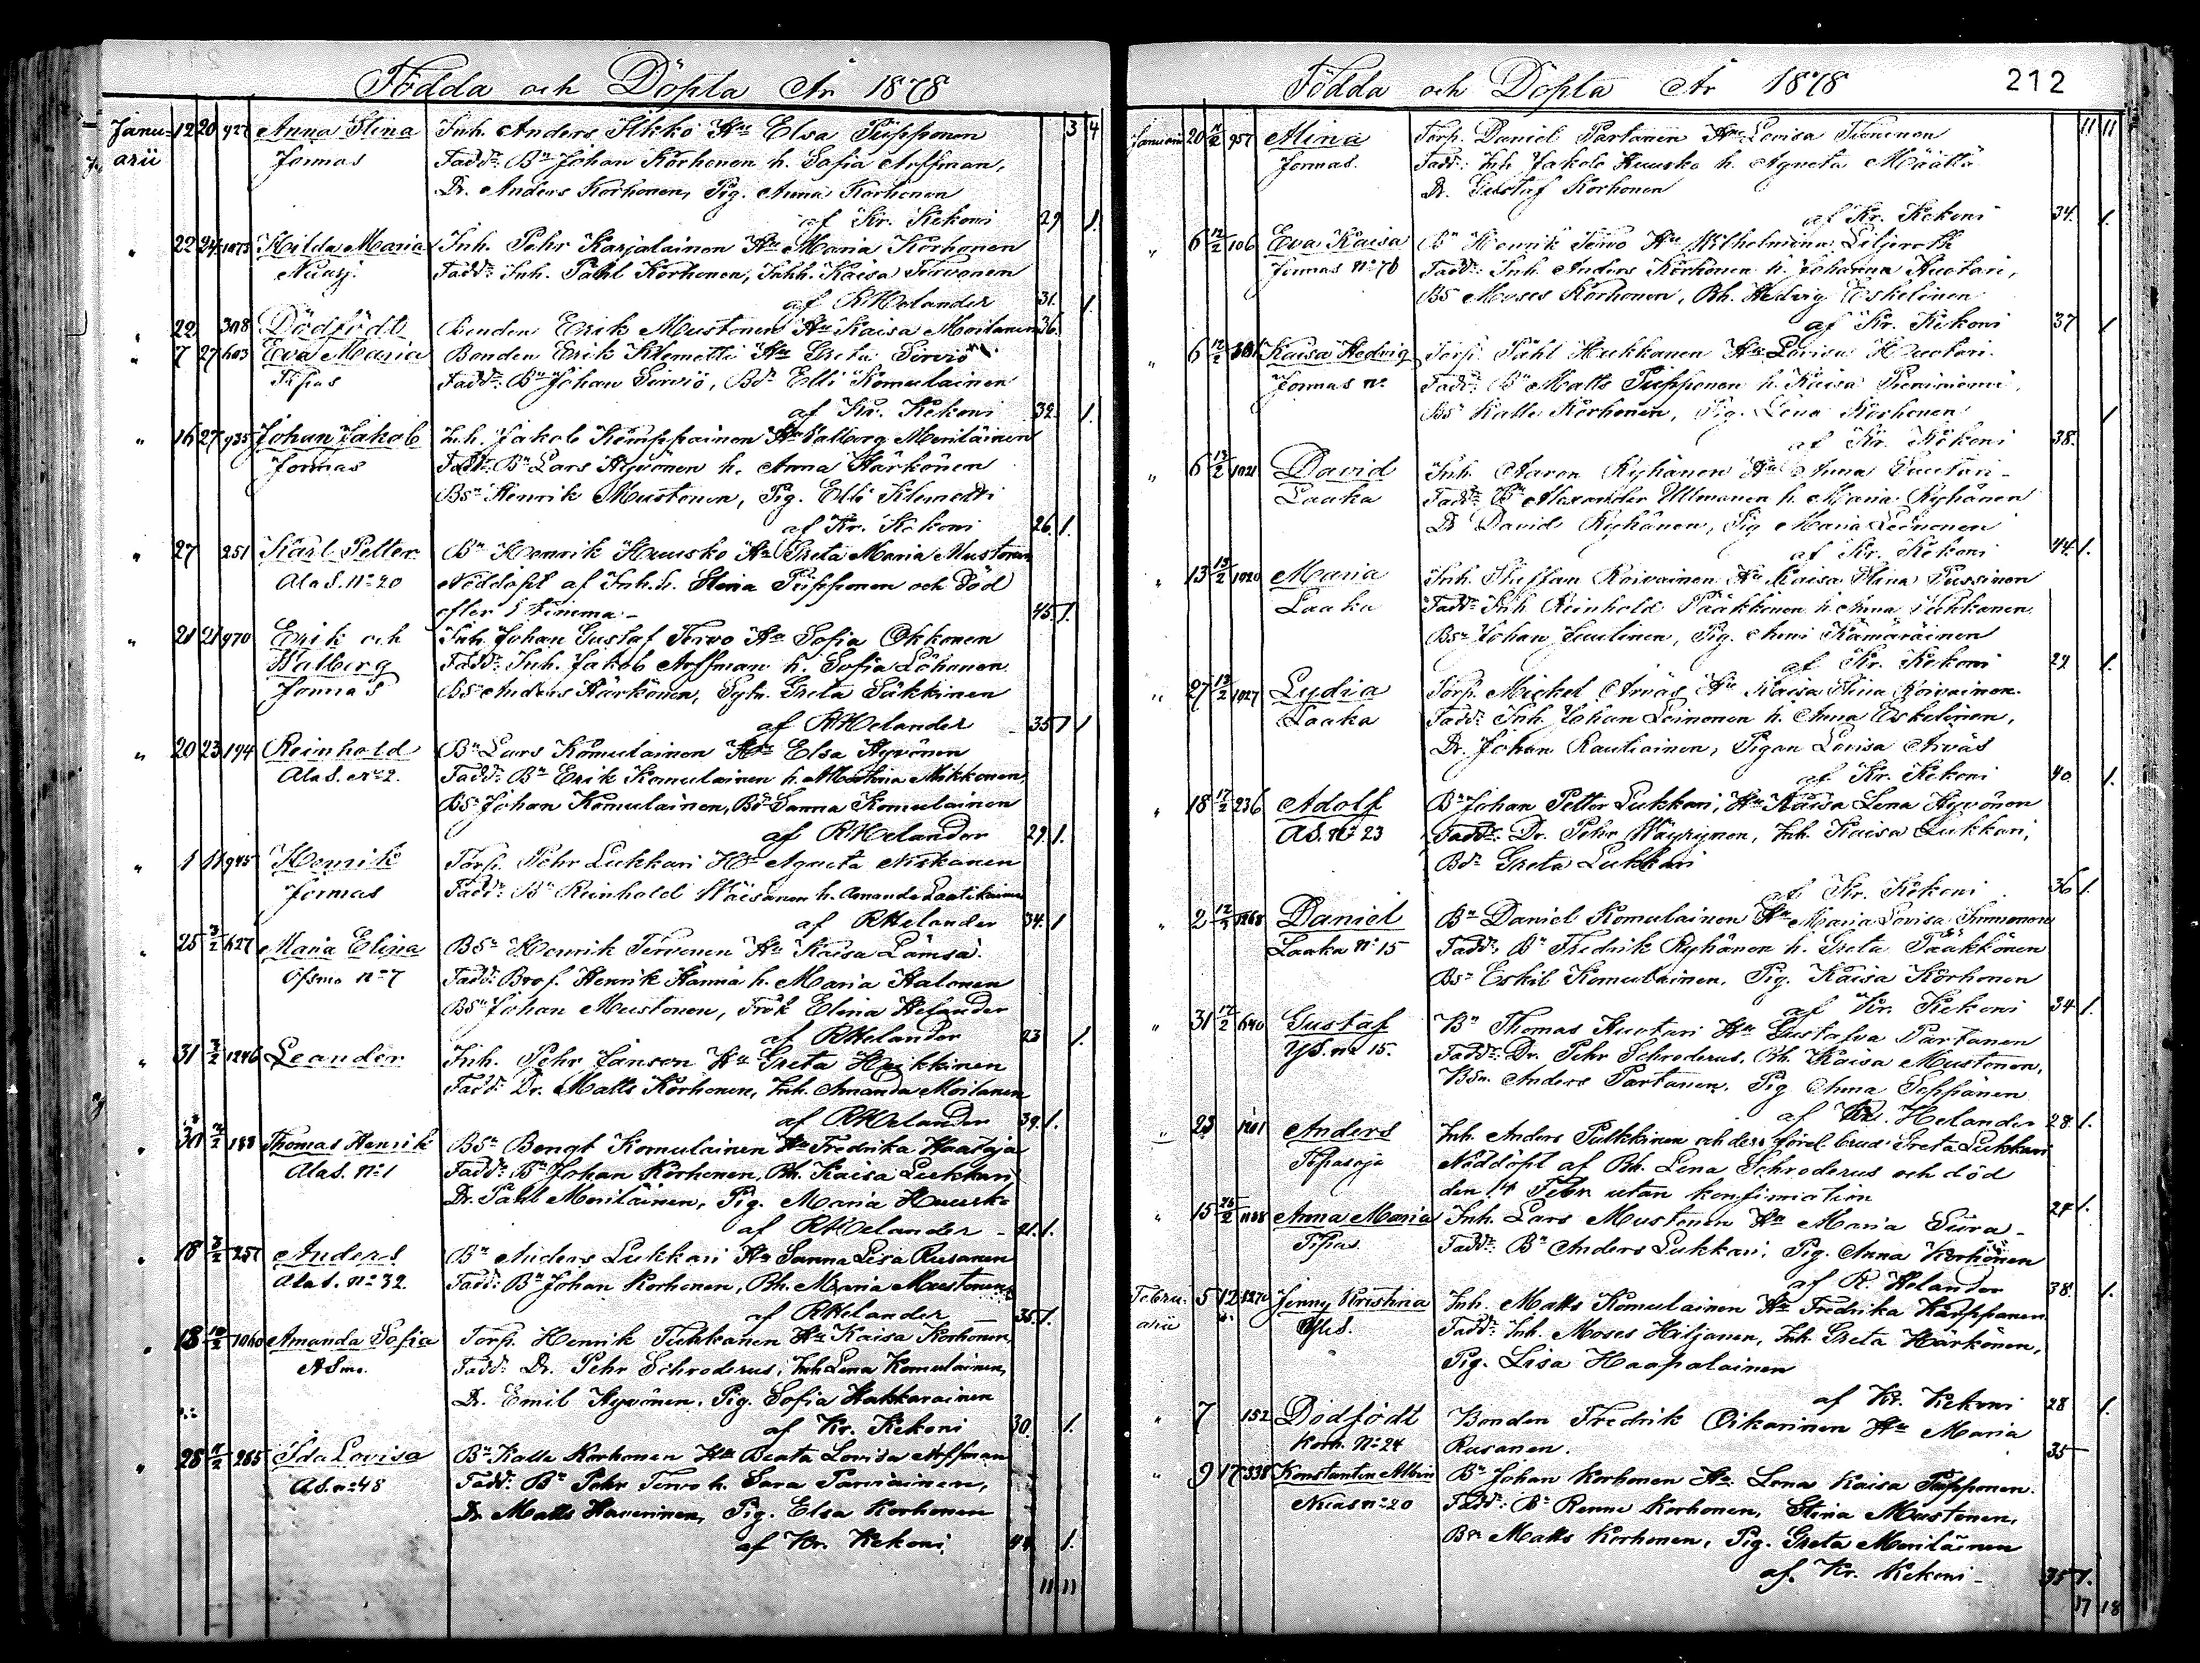 Födda och Döpta År 1878
3 4
Janu- 12 20 927 Anna Stina Inh. Anders Ikko Hu Elsa Piipponen
arii Jormas Fadd: Bn Johan Korhonen h. Sofia Arffman,
Dr. Anders Korhonen, Pig. Anna Korhonen
af Kr. Kekoni 29 1.
" 22 24 1073 Hilda Maria Inh. Pehr Karjalainen Hu Maria Korhonen
Nuasj. Fadd: Inh. Påhl Korhonen, Inhh. Kaisa Tervonen
af RHelander 31. 1.
" 22 308 Dödfödt Bonden Erik Mustonen Hu Kaisa Moilanen 36.
" 7 27 603 Eva Maria Bonden Erik Klemetti Hu Greta Serviö
Tipas Fadd: Bn Johan Serviö, Bdr Elli Komulainen
af Kr. Kekoni 32. 1.
" 16 27 935 Johan Jakob Inh. Jakob Kemppainen Hu Valborg Meriläinen
Jormas Fadd: Bn Lars Hyvönen h. Anna Härkönen
Bsn Henrik Mustonen, Pig. Elli Klemetti
af Kr. Kekoni 26. 1.
" 27 251 Karl Petter Bn Henrik Huusko Hu Greta Maria Mustonen
Ala S. No 20 Nöddöpt af Inh.h. Stina Piipponen och Död
efter 1 timma - 45. 1.
" 21 21 970 Erik och Inh. Johan Gustaf Tervo Hu Sofia Okkonen
Walborg Fadd: Inh. Jakob Arffman h. Sofia Löhönen
Jormas Bs Anders Härkönen, Sytr. Greta Säkkinen
af RHelander 35 1 1
" 20 23 194 Reinhold Bn Lars Komulainen Hu Elsa Hyvönen
Ala S. No 2. Fadd: Bn Erik Komulainen h. Mikkonen
Bsn Johan Komulainen, Bdr Sanna Komulainen
af RHelander 29. 1.
" 1 11 945 Henrik Torp. Pehr Lukkari Hu Agneta
Jormas Fadd: Bn Reinhold Wäisänen h. Amanda Laatikainen
af RHelander 34. 1
" 25 3/2 627 Maria Elina Bsn Henrik Tervonen Hu Kaisa Lämsä.
No 7 Fadd: Henrik h. Maria Halonen
Bsn Johan Mustonen, Frök Elina Helander
af RHelander 23 1.
" 31 3/2 1246 Leander Inh. Pehr Janson Hu Greta Heikkinen
Fadd: Dr. Matts Korhonen, Inh. Amanda Moilanen
af RHelander 39. 1.
" 30 188 Thomas Henrik Bsn Bengt Komulainen Hu Fredrika Haataja
Ala S. No 1 Fadd: Bn Johan Korhonen, Bh. Kaisa Lukkari
Dr. Påhl Meriläinen, Pig. Maria Huusko
af RHelander - 21. 1.
" 18 3/2 257 Anders Bn Anders Lukkari Hu Sanna Lisa Rusanen
Ala S. No 32. Fadd: Bn Johan Korhonen, Bh. Maria Mustonen
af RHelander 35. 1.
" 18 10/2 1040 Amanda Sofia Torp. Henrik Tuhkanen Hu Kaisa Korhonen
Fadd: Dr. Pehr Schroderus, Inh Lena Komulainen,
Dr. Emil Hyvönen, Pig. Sofia Hakkarainen
af Kr. Kekoni 30. 1.
" 28 11/2 285 Ida Lovisa Bn Kalle Korhonen Hu Beata Lovisa Arffman
AS. No 48 Fadd: Bn Pehr Tervo h. Sara Parviainen,
Dr. Matts Haverinen, Pig. Elsa Korhonen
af Kr. Kekoni. 44. 1.
11 11
Födda och Döpta År 1878 212
11 11
Januarii 20 11/2 957 Alina Torp. Daniel Partanen Hu Lovisa
Jormas. Fadd: Inh Jakob Huusko h. Agneta Määttä
Dr. Gustaf Korhonen
af Kr. Kekoni 34. 1.
" 6 12/2 106 Eva Kaisa Bn Henrik Tervo Hu Wilhelmina Liljeroth
Jormas No 76 Fadd: Inh. Anders Korhonen h. Johanna Huotari,
Bs Moses Korhonen, Bh. Hedvig Eskelinen
af Kr. Kekoni 37 1
" 6 12/2 Kaisa Hedvig Torp. Påhl Hukkanen Hu Lovisa Huotari.
Jormas no Fadd: Bn Matts Piipponen h. Kaisa Pieniniemi,
Bsn Kalle Korhonen, Pig. Lena Korhonen 1
af Kr. Kekoni 38.
" 6 13/2 1021 David Inh. Aaron Ryhänen Hu Anna Huotari -
Laaka Fadd: Bn Alexander Ullmanen h. Maria Ryhänen
Dr David Ryhänen, Pig Maria Leinonen
af Kr. Kekoni 44. 1.
" 13 13/2 1020 Maria Inh. Staffan Roivainen Hu Kaisa Stina Pussinen
Laaka Fadd: Inh. Reinhold Pääkkönen h. Anna Tuhkanen
Bsn Johan Juntinen, Pig. Anni Kämäräinen
af Kr. Kekoni 29. 1.
" 27 13/2 1027 Lydia Torp. Mickel Arväs Hu Kaisa Stina Roivainen.
Laaka Fadd: Inh. Johan Leinonen h. Anna Eskelinen,
Dr. Johan Rautiainen, Pigan Lovisa Arväs
af Kr. Kekoni 40. 1.
" 18 17/2 236 Adolf Bn Johan Petter Lukkari, Hu Kaisa Lena Hyvönen
AS. No 23 Fadd: Dr. Pehr Wäyrynen, Inh. Kaisa Lukkari,
Bdr Greta Lukkari
af Kr. Kekoni 36 1.
" 2 12/2 1868 Daniel Bn Daniel Komulainen Hu Maria Lovisa Immonen
Laaka No 15 Fadd: Bn Fredrik Ryhänen h. Greta Pääkkönen
Bsn Eskil Komulainen, Pig. Kaisa Korhonen
af Kr. Kekoni 34. 1.
" 31 17/2 640 Gustaf Bn Thomas Huotari Hu Gustafva Partanen
YS. no 15. Fadd: Dr. Pehr Schroderus, Bh. Kaisa Mustonen,
Bsn. Anders Partanen, Pig Anna Seppänen
af Helander 28. 1.
" 23 1201 Anders Inh. Anders Pulkkinen och dess förel. brud Greta Lukkari
Tipasoja Nöddöpt af Bh. Lena Schroderus och död
den 14 Febr utan konfirmation
" 15 24/2 1188 Anna Maria Inh. Lars Mustonen Hu Maria Sura - 24 1.
Tipas. Fadd: Bn Anders Lukkari, Pig. Anna Korhonen
af R. Helander 38. 1.
Febru- 5 12 1270 Jenny Kristina Inh. Matts Komulainen Hu Fredrika Karppanen
arii Fadd: Inh. Moses Hiljanen, Inh. Greta Härkönen,
Pig. Lisa Haapalainen
af Kr. Kekoni 28 1.
" 7 152 Dödfödt Bonden Fredrik Oikarinen Hu Maria
Korh. No 24 Rusanen. 35
" 9 17 338 Konstantin Albin Bn Johan Korhonen Hu Lena Kaisa Piipponen.
Nuas no 20 Fadd: Bn Renne Korhonen, Stina Mustonen,
Bsn Matts Korhonen, Pig. Greta Meriläinen
af. Kr. Kekoni - 35 1.
17 18